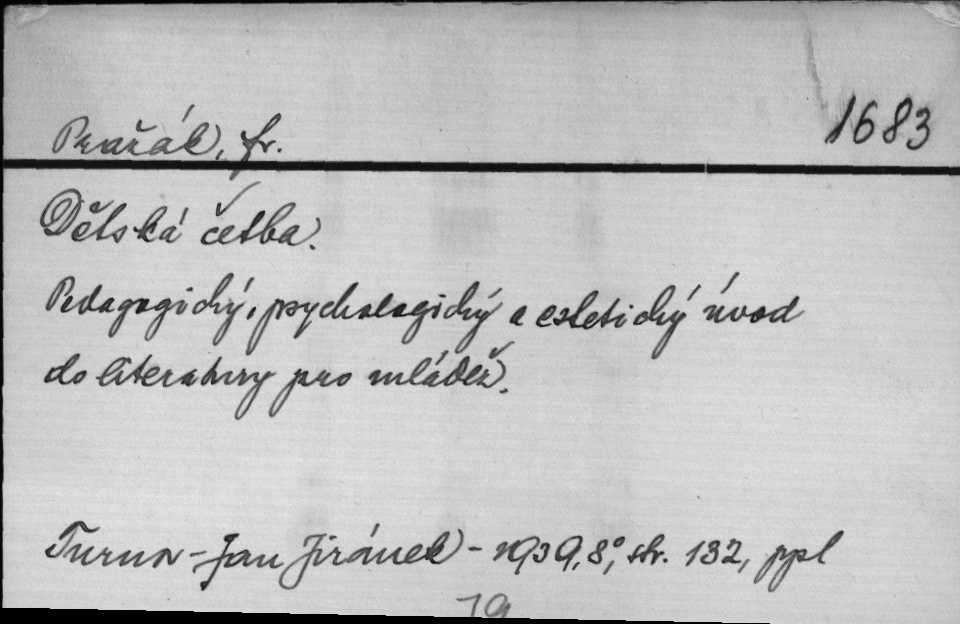 Pražák, Fr.
1683
Dětská četba.
Pedagogický, psychologický a estetický úvod
do literatury pro mládež.
Turnov - Jan Jiránek - 1939, 8°, str. 132, ppl
19